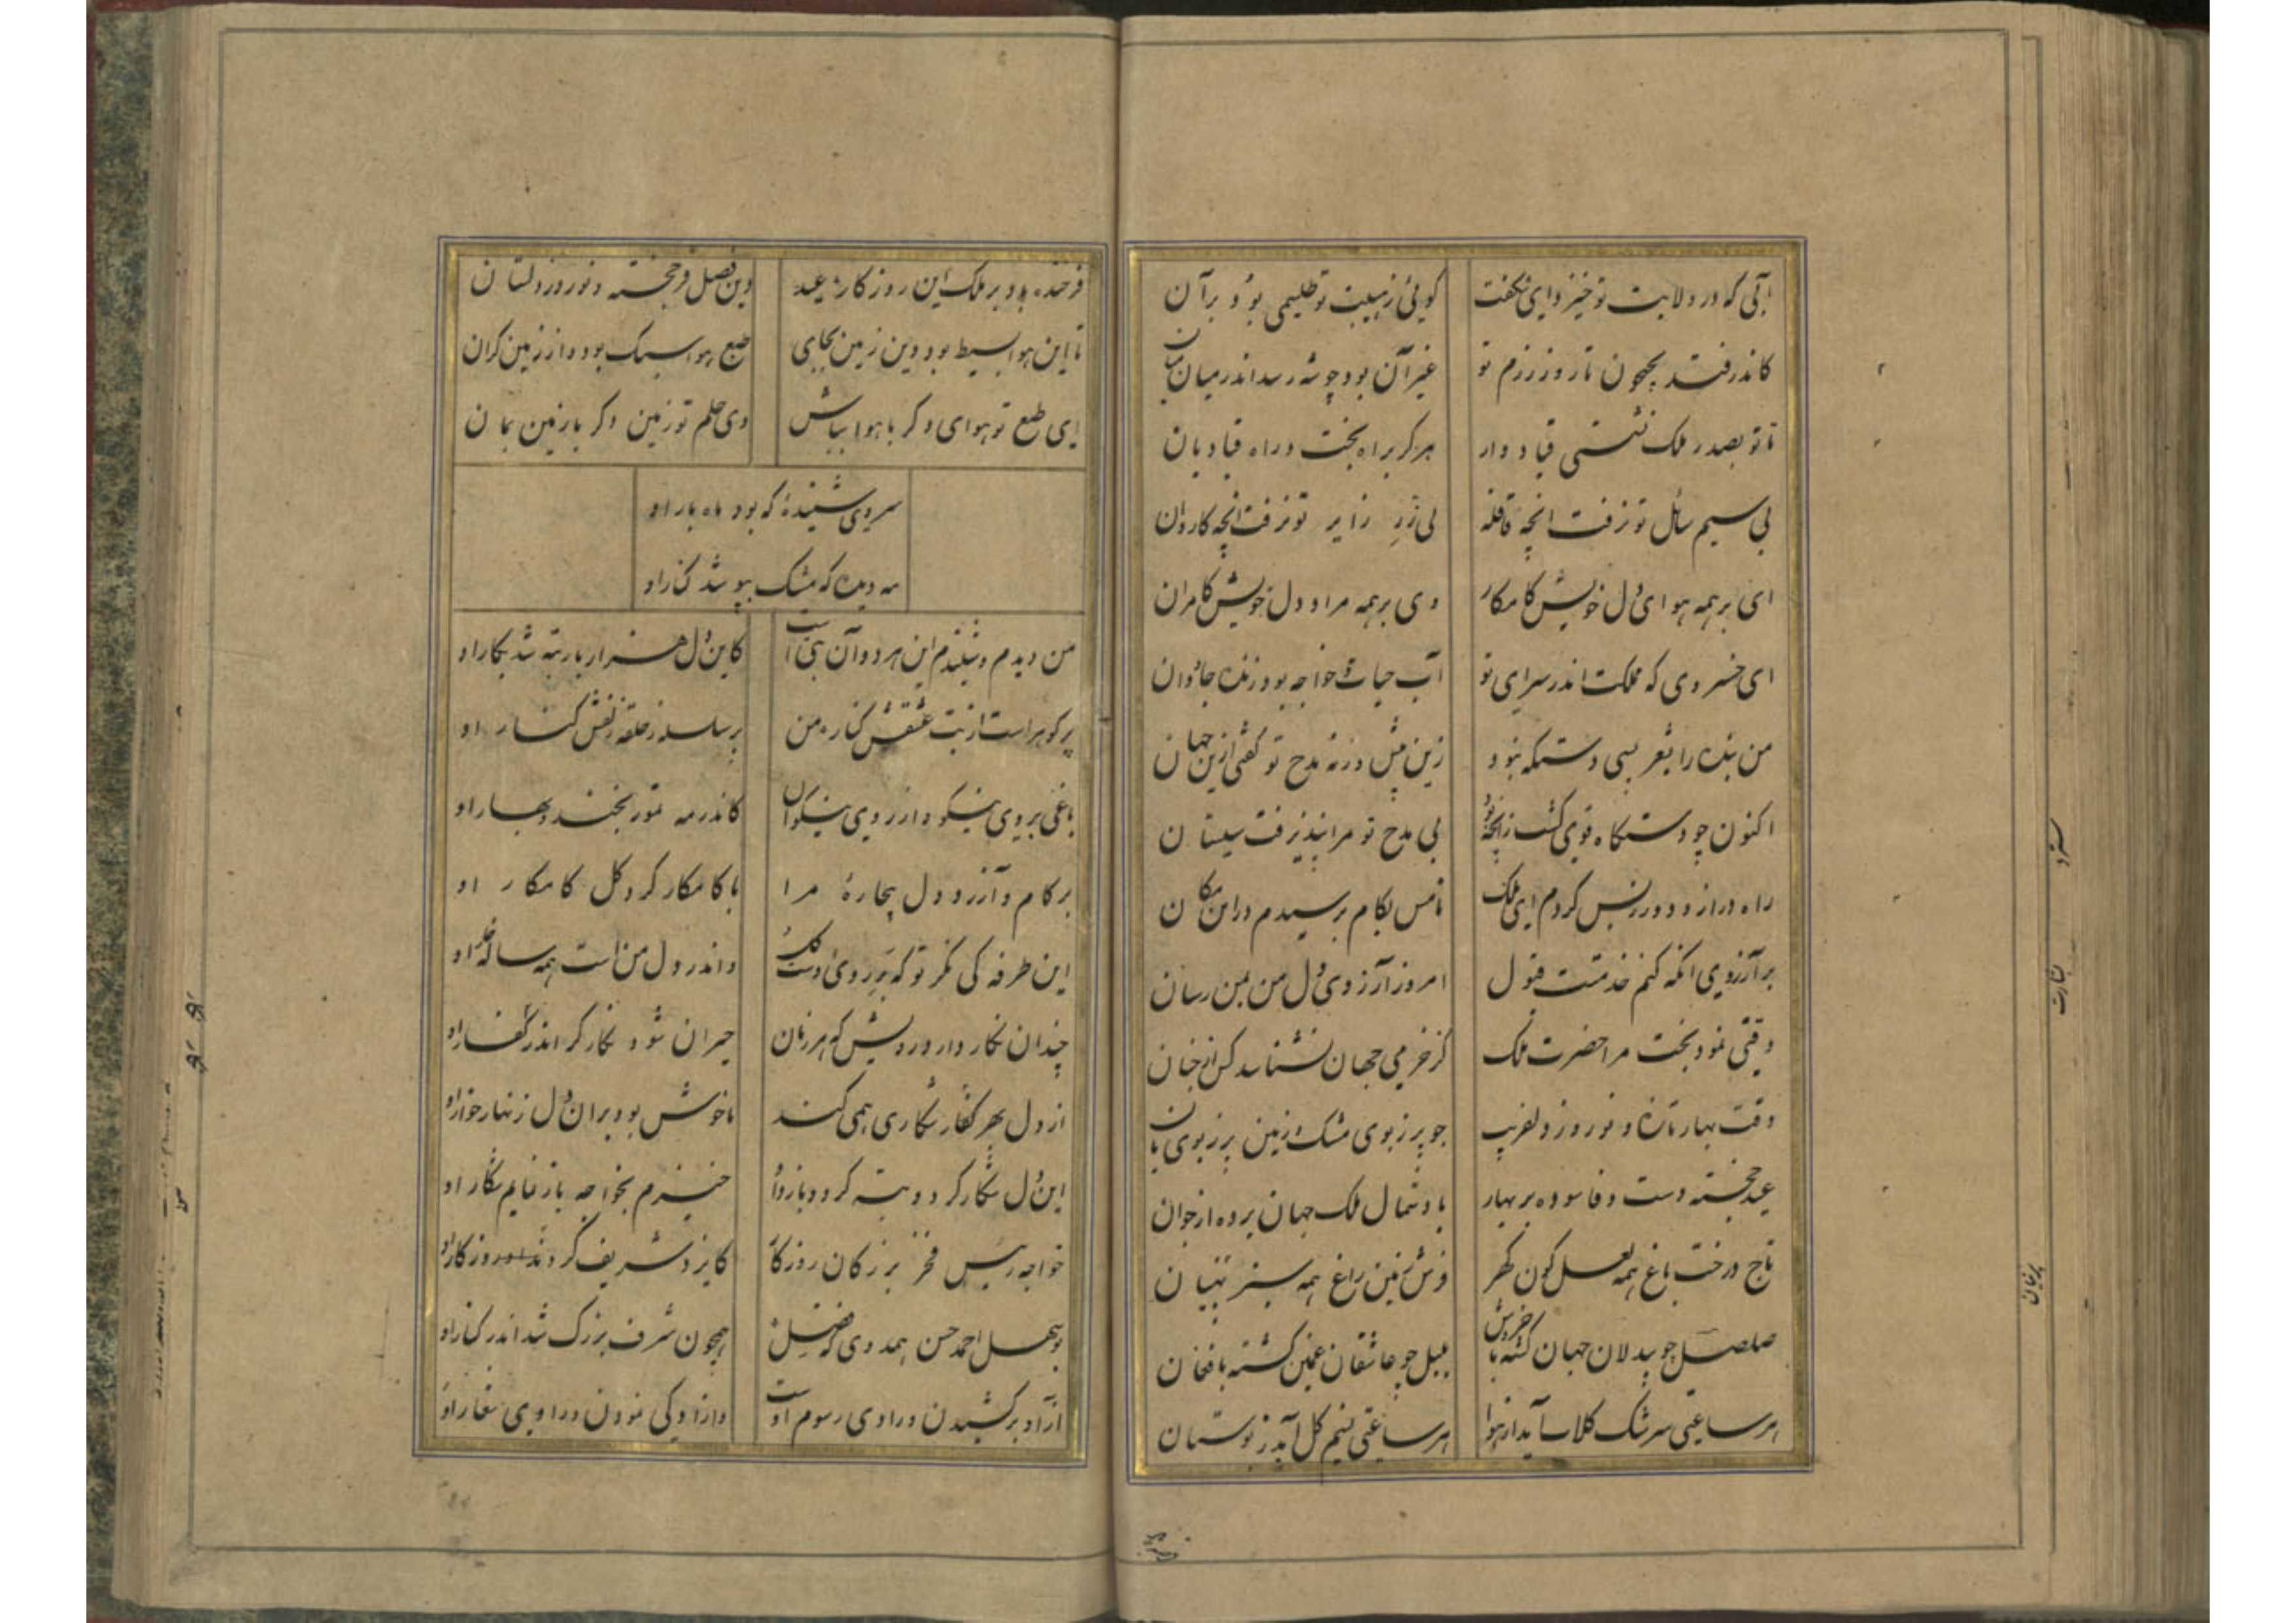 آبی که در ولایت تو خیزد ای شگفت
گوئی ز هیبت تو طلسمی بود بر آن
کاندر فتد بجیحون تا روز رزم تو
غیر آن بود چو شه رسد اندر میان
تا تو بصدر ملک نشستی قباد وار
هرگز براه بخت و راه قبادیان
بی سیم سائل تو نرفت ایچ قافله
بی زر زایر تو نرفت ایچ کاروان
ای بر همه هوای دل خویش کامکار
وی بر همه مراد دل خویش کامران
ای خسروی که مملکت اندر سرای تو
آب حیات خواجه بود زنده جاودان
من بنده را بشعر بسی دستگه نبود
زین پیش ورنه مدح تو گفتی ازین جهان
اکنون چو دستگاه قوی گشت ز آنچه بود
بی مدح تو مرا نپذیرفت سیستان
راه دراز و دور ز پس کردم ای ملک
تا من بکام برسیدم در این مکان
بر آرزوی آنکه کنم خدمتت قبول
امروز آرزوی دل من بمن رسان
وقتی نمود بخت مرا حضرت ملک
کز خرمی جهان نشناسد کس از جنان
وقت بهار تازه و نوروز دلفریب
جو پر ز بوی مشک زمین پر ز بوی بان
عید خجسته دست وفا سوده بر بهار
باد شمال ملک جهان برده از خزان
تاج درخت باغ همه لعل گون گهر
فرش زمین راغ همه سبز پرنیان
صلصل چو بیدلان جهان گشته با خروش
بلبل چو عاشقان غمین گشته با فغان
هر ساعتی سرشک گلاب آید از هوا
هر ساعتی نسیم گل آید ز بوستان
فرخنده باد بر ملک این روزگار عید
وین فصل فرخجسته و نوروز دلستان
تا این هوا بسیط بود وین زمین بجای
طبع هوا سبک بود و از زمین گران
ای طبع تو هوای دگر با هوا بباش
وی حلم تو زمین دگر با زمین بمان
سروی شنیده که بود ماه بار او
مه دیده که مشک بپوشد کنار او
من دیدم و شنیدم این هر دو آن بتی است
کاین دل هزار بار تبه شد بکار او
پر گوهر است از بت عشقش کنار من
پر سلسله ز حلقه زلفش کنار او
باغی بروی نیکو و از روی نیکوان
کاندر مه تموز بخندد بهار او
بر کام و آرزوی دل بیچاره مرا
با کامکار کرد گل کامکار او
این طرفه کی نگر تو که بر روی دوست گل
و اندر دل من است همه ساله خار او
چندان نگار دارد رویش که هر زمان
حیران شود نگارگر اندر نگار او
از دل بهر کنار شکاری همی کند
ناخوش بود بر آن دل زنهار خوار او
این دل شکار کرد و تبه کرد و باز او
خیزم بخواجه باز نمایم شکار او
خواجه رئیس فخر بزرگان روزگار
کایزد شریف کرد بدو روزگار او
بوسهل احمد حسن حمدوی که فضل
همچون شرف بزرگ شد اندر کنار او
آزاد برکشیدن و رادی رسوم اوست
و آزادگی نمودن و رادی شعار او